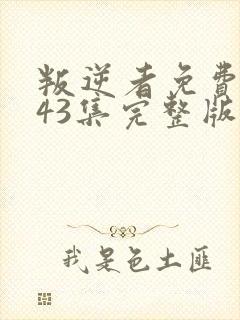 叛逆者免费
43集完整版
我是色土匪